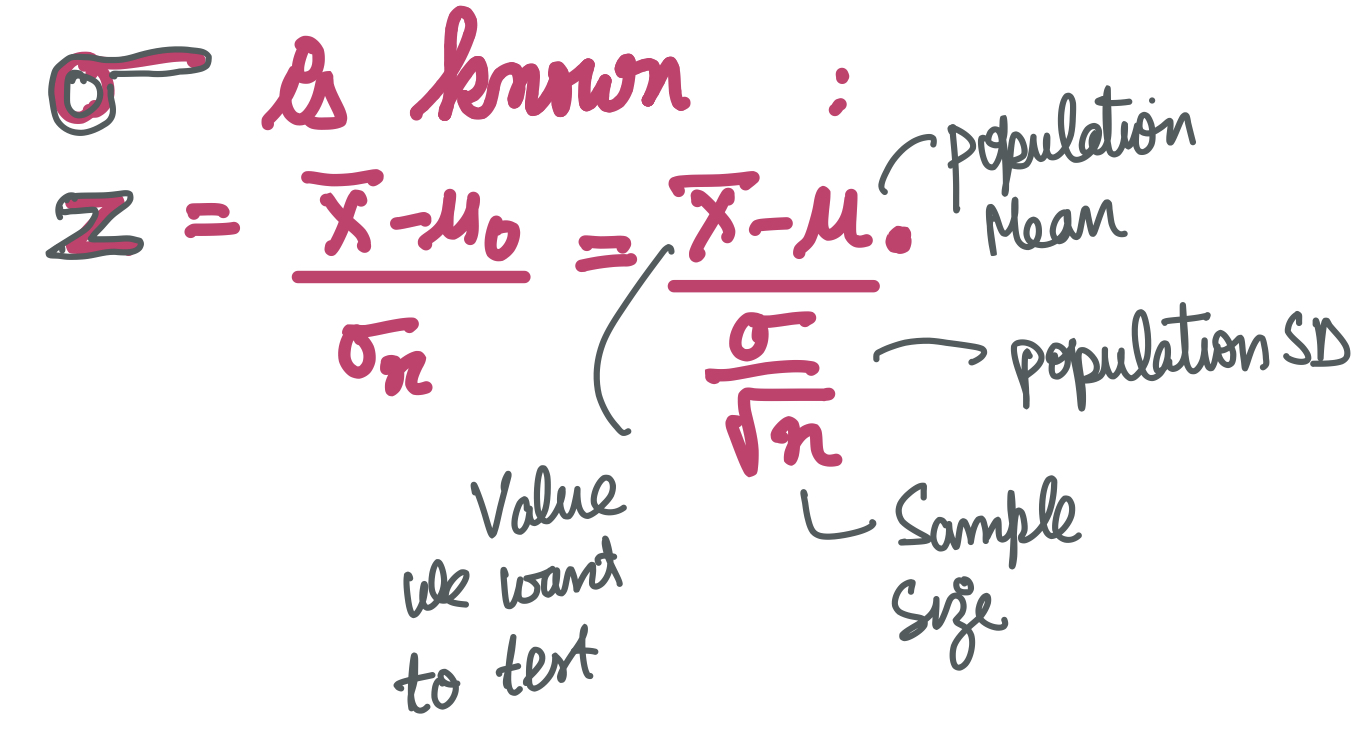 σ is known :
z = (x̄ - μ₀) / σₙ = (x̄ - μ.) / (σ / √n)
population
Mean
population SD
Value
we want
to test
Sample
Size